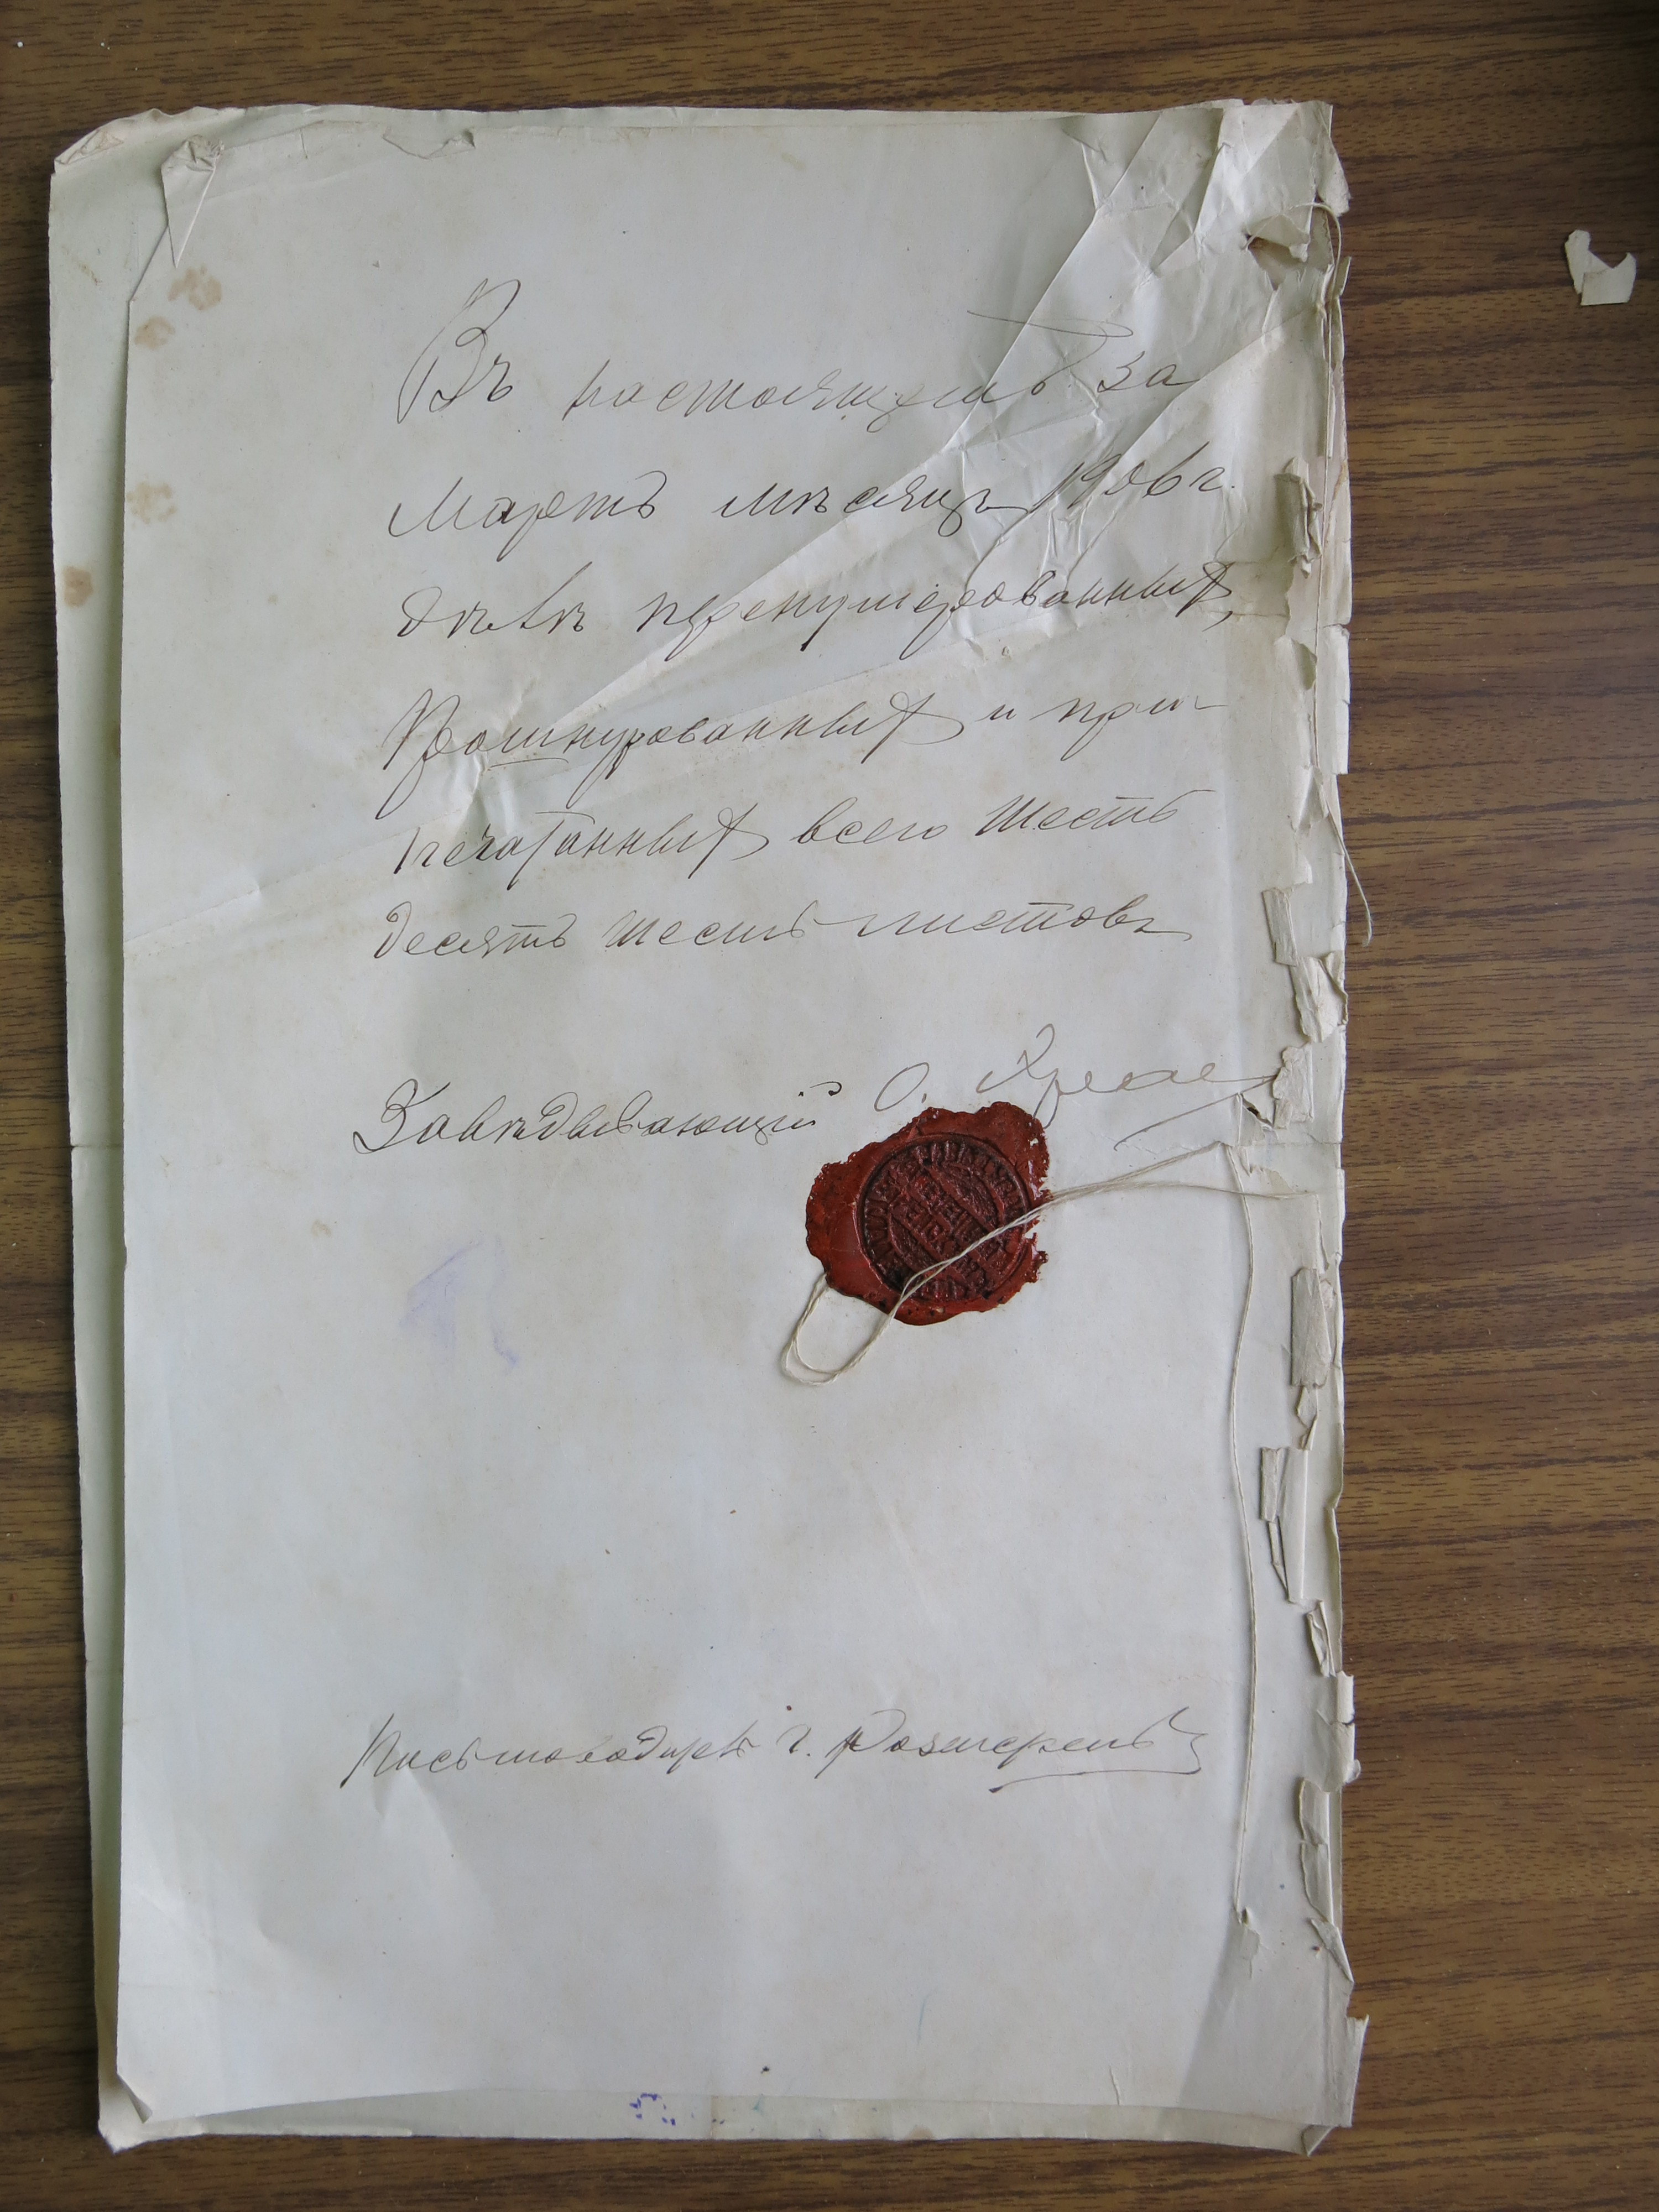 Въ настоящемъ за
Мартъ мѣсяцъ 1906 г.
дѣлѣ перенумерованныхъ,
Прошнурованныхъ и при-
печатанныхъ всего шесть
десять шесть листовъ
Завѣдывающій О.
Письмоводиръ Г.